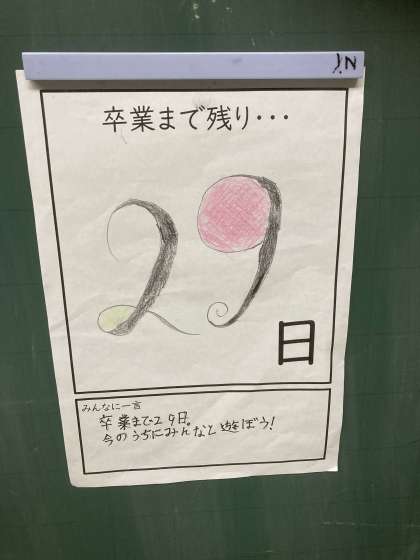 卒業まで残り・・・
29
日
みんなに一言
卒業まで29日。
今のうちにみんなと遊ぼう!